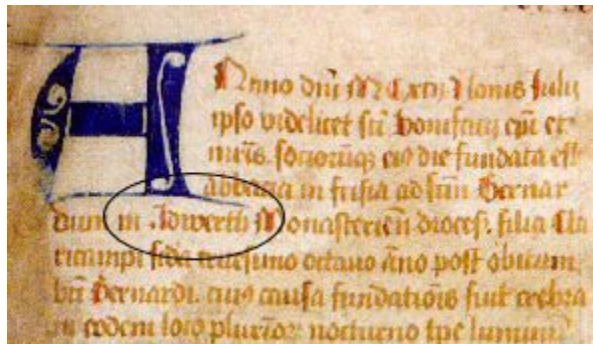 Anno dñi M C xcij Nonis Julij
ipso videlicet sti bonifacij epi et
mris. sociorūqȝ eiꝰ die fundata est
abbatia in frisia ad stm Bernar
dum in Adwerth Monasterieñ diocesi. filia Cla
ricampi sede tricesimo octauo año post obitum
bti Bernardi. cuiꝰ causa fundatiōis fuit crebra
in eodem loco plurioꝝ nocturno tpe luminum